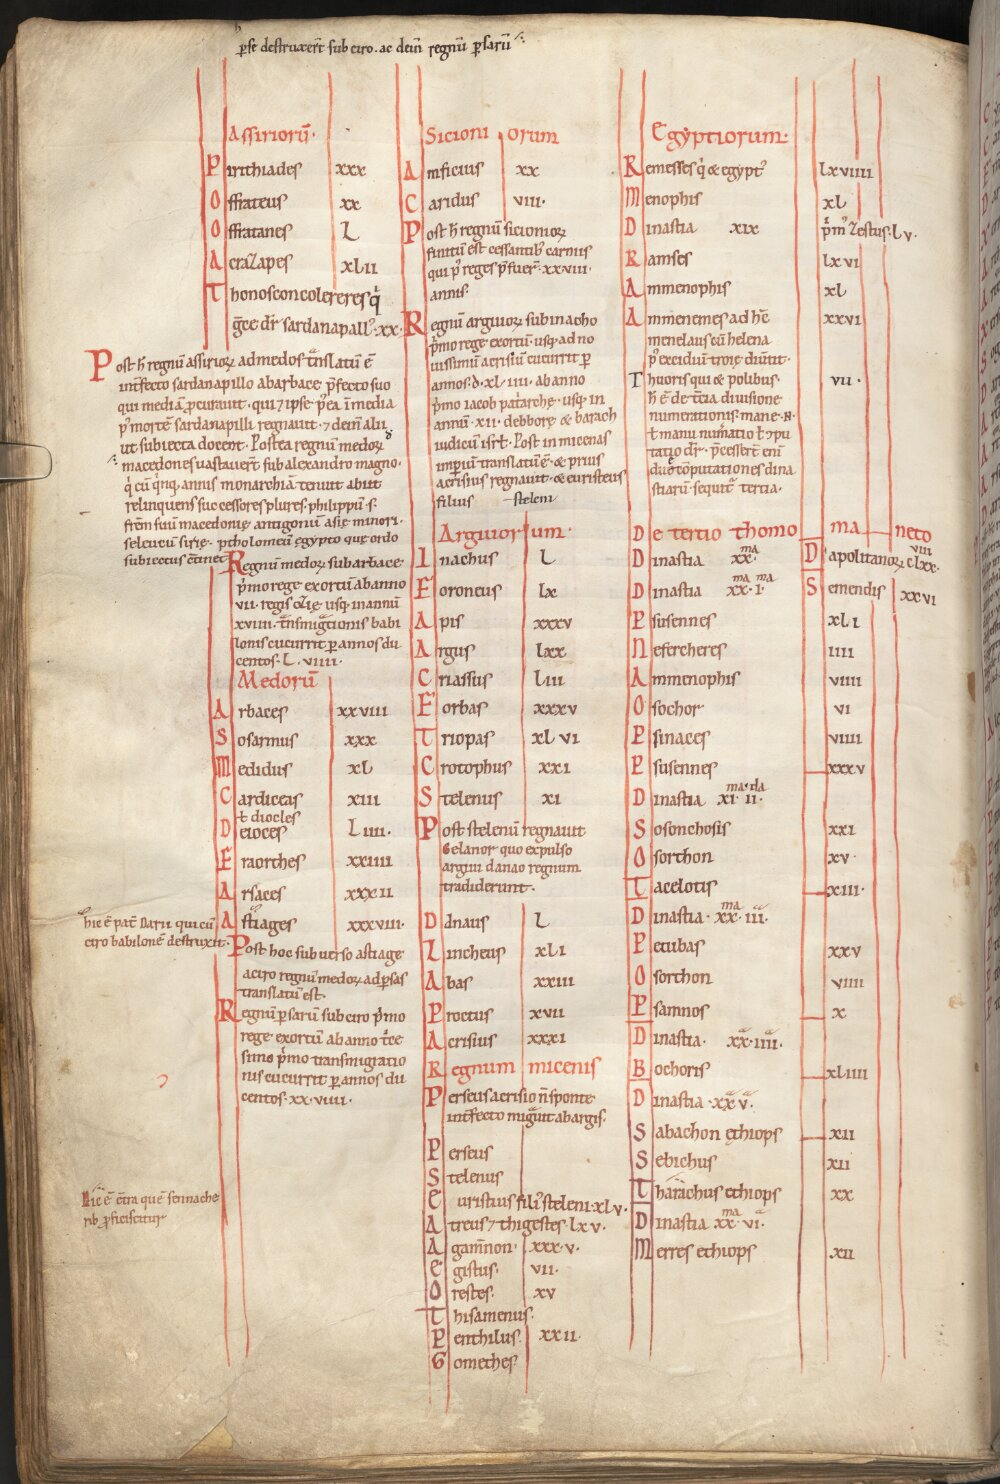 p̱se destruxer̄t sub ciro. ac dein̄ regnū p̱sarū
Assiriorū.
Pirithiades xxx
Offrateus xx
Offratanes L
Acrazapes xlii
Thonosconcolereres q̇
gꝫce dr̄ sardanapall᷒. xx.
Post h̄ regnū assirioꝝ ad medos t̄nslatū ē
int̄fecto sardanapillo abarbace p̄fecto suo
qui mediā ꝓcurauit. qui ⁊ ipse p᷒ ea ī media
p᷒ mortē sardanapilli regnauit. ⁊ dein̄ alii
ut subiecta docent. Postea regnū medoꝝ
macedones uastauer̄t sub alexandro magno.
q̇ cū q̇nq. annis monarchiā tenuit abiit
relinquens successores plures. philippū .s.
fr̄em suū macedonie. antigonū asie minori.
seleucū sirie. ptholomeū egypto que ordo
subiectus c̄tinet
Regnū medoꝝ sub arbace
p̄mo rege exortū ab anno
vii. regis ozie. usq. in annū
xviiii. t̄nsmigrationis babi
lonis cucurrit p̱ annos du
centos. L. viiii.
Medorū
Arbaces xxviii
Sosarmus xxx
Medidus xl
Cardiceas xiii
ł diocles
Deioces Liiii.
Fraorthes xxiiii
Arsaces xxxii
Astiages xxxviii.
hic ē pat̄ Darii qui cū
ciro babilonē destruxit.
Post hoc subuerso astiage
a ciro regnū medoꝝ ad p̱sas
translatū est.
Regnū p̱sarū sub ciro p̄mo
rege exortū ab anno t̄ce
simo p̄mo transmigratio
nis cucurrit p̱ annos du
centos. xx. viiii.
Hic ē c̄tra quē sennache
rib ꝓficiscitur
Sicioniorum
Amficius xx
Caridus viii.
Post h̄ regnū sicionioꝝ
finitū est cessantib᷒ carniis
qui p᷒ reges p̄fuer̄. xxviii.
annis.
Regnū argiuoꝝ sub inacho
p̄mo rege exortū. usq. ad no
uissimū acrisiū cucurrit p̱
annos. d. xl. iiii. ab anno
p̄mo iacob patriarche. usq. in
annū. xii. debbore & barach
iudicū isrł. Post in micenas
imperiū translatū ē. & prius
acrisius regnauit. & euristeus
filius steleni
Argiuorum.
Inachus L
Foroneus lx
Apis xxxv
Argus lxx
Criassus Liii
Forbas xxxv
Triopas xl vi
Crotophus xxi
Stelenus xi
Post stelenū regnauit
Gelanor quo expulso
argiui danao regnum
tradiderunt.
Ddnaus L
Lincheus xLi
Abas xxiii
Proetus xvii
Acrisius xxxi
Regnum micenis
Perseus acrisio n̄ sponte
int̄fecto migrauit ab argis.
Perseus
Stelenus
Euristius fili᷒ steleni. xlv.
Atreus ⁊ thigestes. lxv.
Agam̄non. xxx.v.
Egistus. vii.
Orestes. xv
Thisamenus.
Penthilus. xxii.
Gomethes.
Egyptiorum.
Remesses q̇ & egypt᷒ lxviiii
Menophis xl
Dinastia xix p̄m᷒ zestus. lv.
Ramses lxvi
Ammenophis xl
Ammenemes ad hc̄ xxvi
menelaus cū helena
p᷒ excidiū troie diu̅tit.
Thuoris qui & polibus. vii.
h̄ ē de t̄cia diuisione
numerationis. mane. N.
ł manu num̄atio ł ꝯpu
tatio dr̄. p̄cessert̄ eni̅
due cōputationes dina
stiarū. sequit᷒ tertia.
De tertio thomo maneto
Dinastia xx.ma Dapolitanoꝝ clxx.viii
Dinastia xx.ma i.ma Semendis xxvi
Psusennes xLi
Nefercheres iiii
Ammenophis viiii
Osochor vi
Psinaces viiii
Psusennes xxxv
Dinastia xx.ma ii.da
Sosonchosis xxi
Osorthon xv.
Tacelotis xiii.
Dinastia. xx.ma iii.
Petubas xxv
Osorthon viiii
Psannos x
Dinastia. xx. iiii.
Bochoris xliiii
Dinastia. xx v.
Sabachon ethiops xii
Sebichus xii
Tharachus ethiops xx
Dinastia xx.ma vi.
Merres ethiops xii